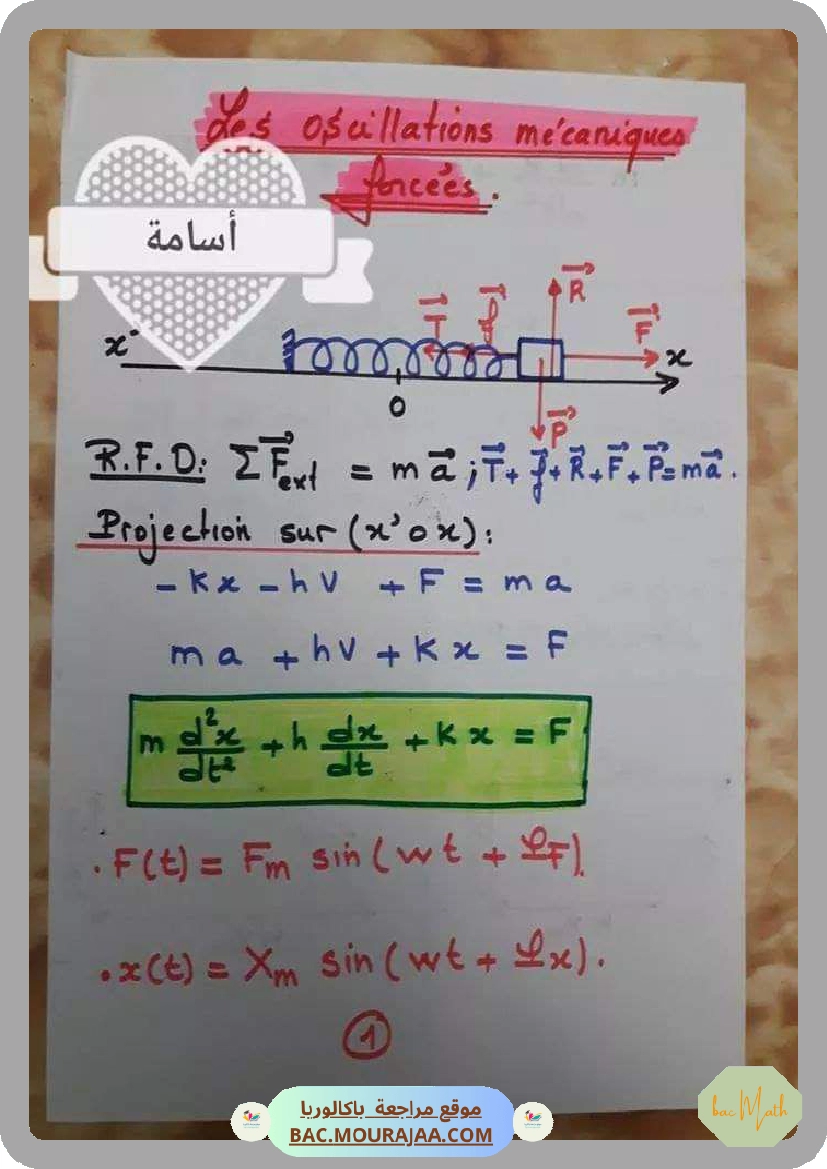 Les oscillations mécaniques
forcées.
أسامة
x' T f R F x
O P
R.F.D: ΣF⃗ext = m a⃗ ; T⃗ + f⃗ + R⃗ + F⃗ + P⃗ = m a⃗.
Projection sur (x'ox):
- Kx - hv + F = ma
ma + hv + Kx = F
m d²x/dt² + h dx/dt + Kx = F
. F(t) = Fm sin(wt + φF).
. x(t) = Xm sin(wt + φx).
1
موقع مراجعة باكالوريا
BAC.MOURAJAA.COM
bac Math